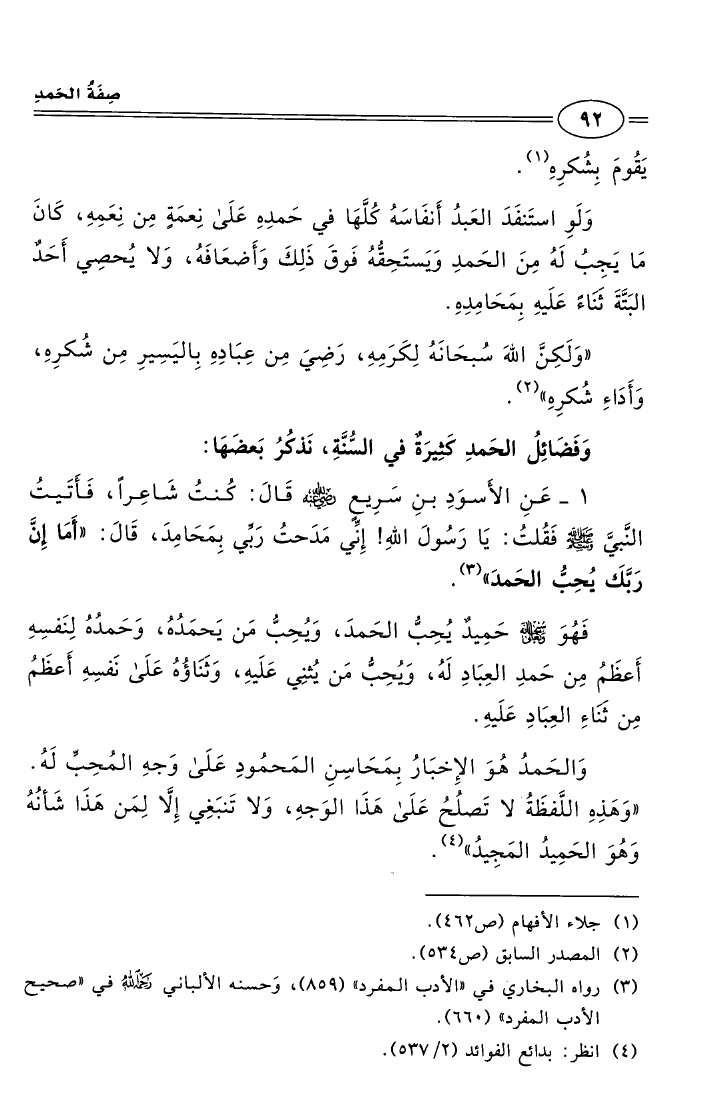 صِفَةُ الحَمدِ
٩٢
يَقُومَ بِشُكرِهِ(١).
وَلَوِ استَنفَدَ العَبدُ أَنفَاسَهُ كُلَّهَا في حَمدِهِ عَلَىٰ نِعمَةٍ مِن نِعَمِهِ، كَانَ
مَا يَجِبُ لَهُ مِنَ الحَمدِ وَيَستَحِقُّهُ فَوقَ ذَلِكَ وَأَضعَافَهُ، وَلَا يُحصِي أَحَدٌ
البَتَّةَ ثَنَاءً عَلَيهِ بِمَحَامِدِهِ.
«وَلَكِنَّ اللهَ سُبحَانَهُ لِكَرَمِهِ، رَضِيَ مِن عِبَادِهِ بِاليَسِيرِ مِن شُكرِهِ،
وَأَدَاءِ شُكرِهِ»(٢).
وَفَضَائِلُ الحَمدِ كَثِيرَةٌ في السُّنَّةِ، نَذكُرُ بَعضَهَا:
١ - عَنِ الأَسوَدِ بنِ سَرِيعٍ رضي الله عنه قَالَ: كُنتُ شَاعِراً، فَأَتَيتُ
النَّبِيَّ ﷺ فَقُلتُ: يَا رَسُولَ اللهِ! إِنِّي مَدَحتُ رَبِّي بِمَحَامِدَ، قَالَ: «أَمَا إِنَّ
رَبَّكَ يُحِبُّ الحَمدَ»(٣).
فَهُوَ سبحانه وتعالى حَمِيدٌ يُحِبُّ الحَمدَ، وَيُحِبُّ مَن يَحمَدُهُ، وَحَمدُهُ لِنَفسِهِ
أَعظَمُ مِن حَمدِ العِبَادِ لَهُ، وَيُحِبُّ مَن يُثنِي عَلَيهِ، وَثَنَاؤُهُ عَلَىٰ نَفسِهِ أَعظَمُ
مِن ثَنَاءِ العِبَادِ عَلَيهِ.
وَالحَمدُ هُوَ الإِخبَارُ بِمَحَاسِنِ المَحمُودِ عَلَىٰ وَجهِ المُحِبِّ لَهُ.
«وَهَذِهِ اللَّفظَةُ لا تَصلُحُ عَلَىٰ هَذَا الوَجهِ، وَلا تَنبَغِي إِلَّا لِمَن هَذَا شَأنُهُ
وَهُوَ الحَمِيدُ المَجِيدُ»(٤).
(١) جلاء الأفهام (ص٤٦٢).
(٢) المصدر السابق (ص٥٣٤).
(٣) رواه البخاري في «الأدب المفرد» (٨٥٩)، وَحسنه الألباني رحمه الله في «صحيح
الأدب المفرد» (٦٦٠).
(٤) انظر: بدائع الفوائد (٢/ ٥٣٧).